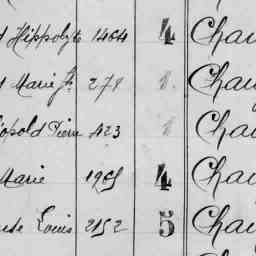 Hippolyte 1464 4 Chau
Marie 279 1 Chau
Léopold Pierre 423 1 Chau
Marie 1909 4 Chau
Louis 2152 5 Chau